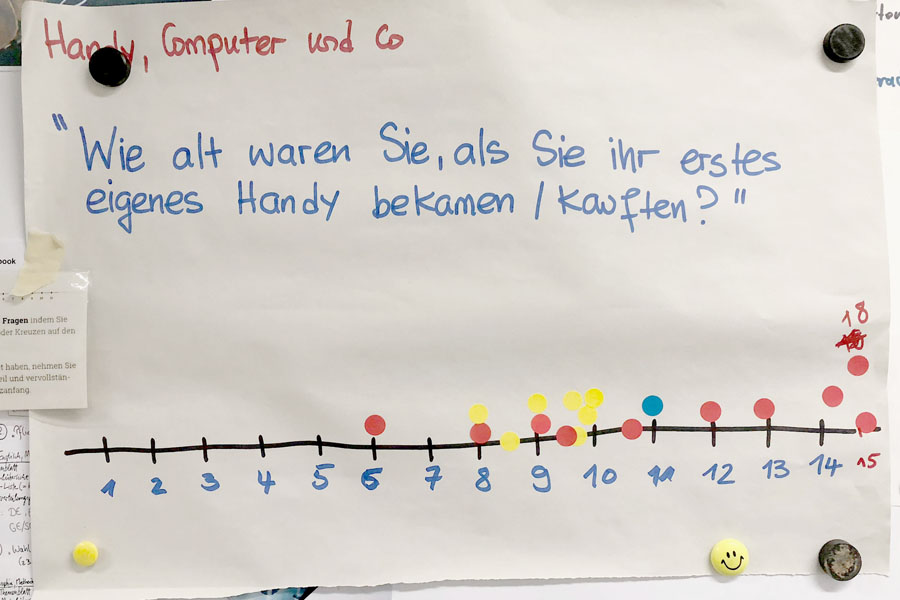 Handy, Computer und Co
"Wie alt waren Sie, als Sie ihr erstes
eigenes Handy bekamen / kauften?"
book
Fragen indem Sie
oder Kreuzen auf den
t haben, nehmen Sie
eil und vervollstän-
zanfang.
18
1 2 3 4 5 6 7 8 9 10 11 12 13 14 15